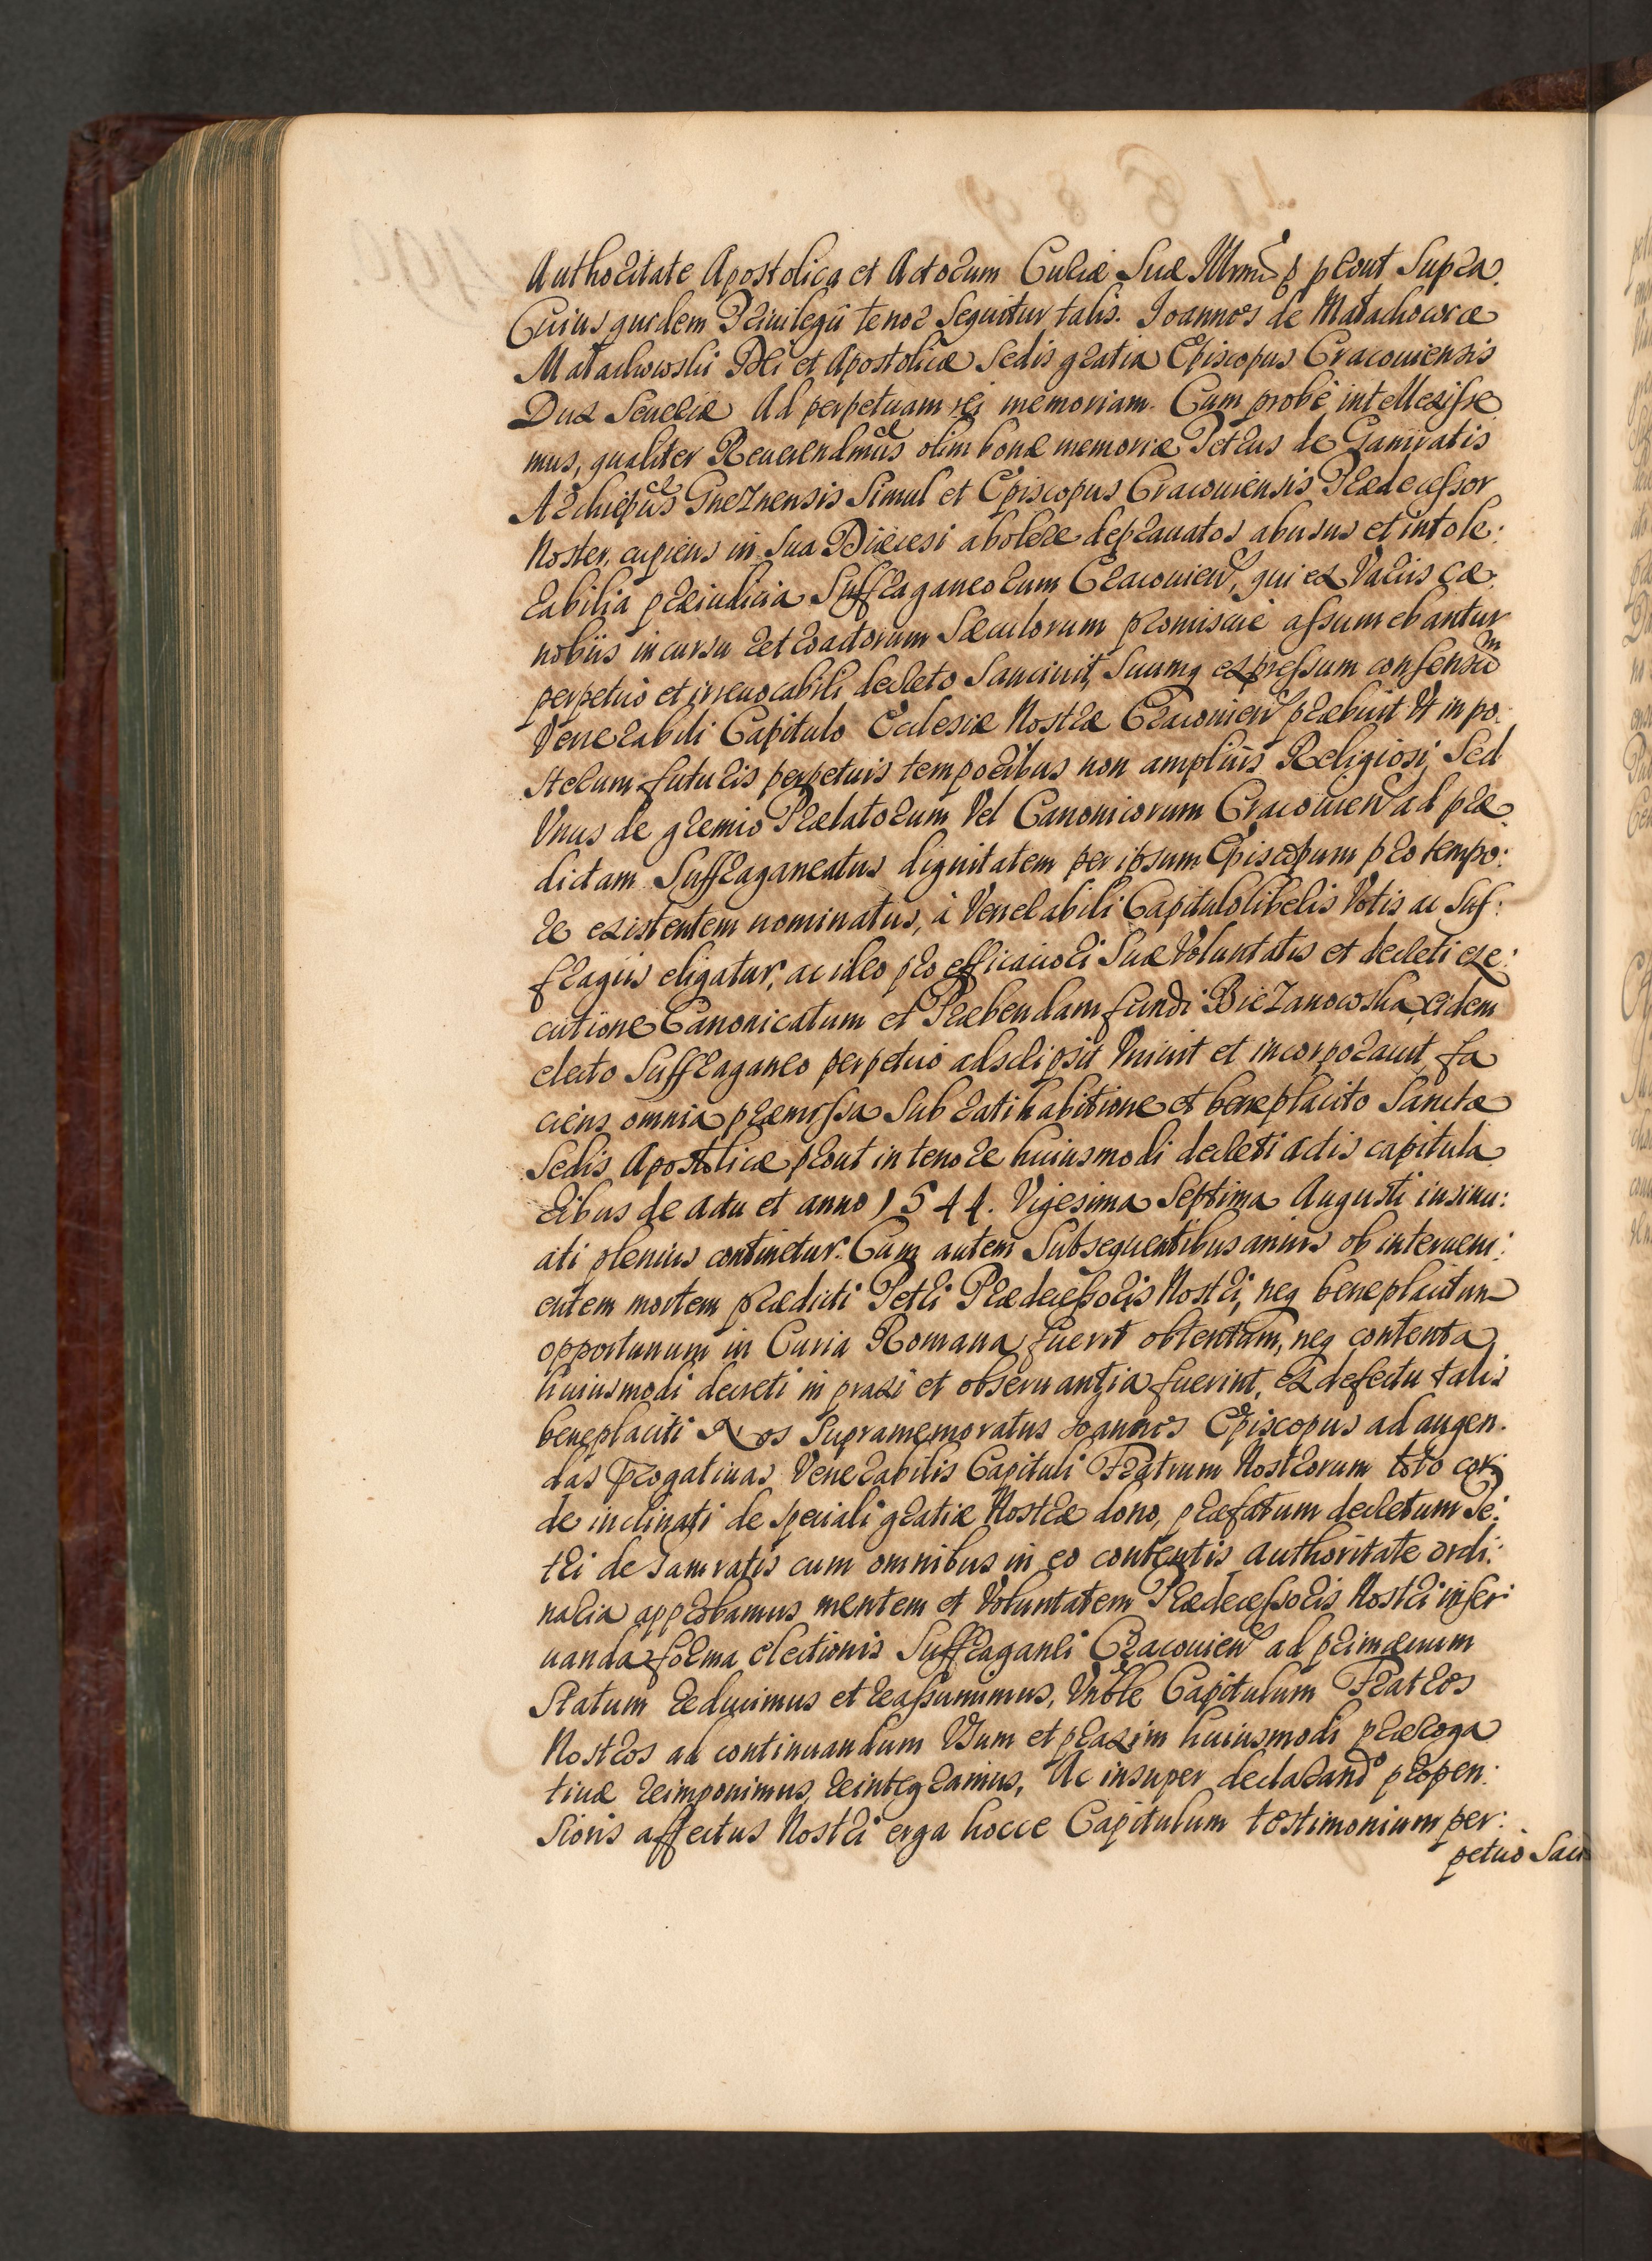 Authoritate Apostolica et Actorum Curiæ Suæ prout Supra.
Cuius quidem Priuilegii tenor Sequitur talis. Joannes de Małachowice
Małachowski Dei et Apostolicæ Sedis gratia Episcopus Cracouiensis
Dux Seueriæ Ad perpetuam rei memoriam. Cum probè intellexisse
mus, qualiter Reuerendmus olim bonæ memoriæ Petrus de Gamratis
Archiepus Gneznensis Simul et Episcopus Cracouiensis Prædecessor
Noster, cupiens in Sua Diæcesi abolere deprauatos abusus et intole:
rabilia præiudicia Suffraganeorum Cracouien, qui ex Varijs cæ:
nobiis incursu retroactorum Sæculorum promiscuè assumebantur
perpetuò et irreuocabili decreto Sanciuit, Suumq expressum consensum
Venerabili Capitulo Ecclesiæ Nostræ Cracouien præbuit Vt in po:
sterum futuris perpetuis temporibus non ampliùs Religiosi, Sed
Vnus de gremio Prælatorum Vel Canonicorum Cracouien ad præ
dictam Suffraganeatus dignitatem per ipsum Episcopum pro tempo:
re existentem nominatus, à Venerabili Capitulo liberis Votis ac Suf:
fragiis eligatur, ac ideo pro efficaciori Suæ Voluntatis et decreti exe:
cutione Canonicatum et Præbendam fundi Bieżanowska, eidem
electo Suffraganeo perpetuò adscripsit Vniuit et incorporauit, fa
ciens omnia præmissa Sub ratihabitione et beneplacito Sanctæ
Sedis Apostolicæ prout in tenore huiusmodi decreti actis capitula
ribus de actu et anno 1544. Vigesima Septima Augusti insinu:
ati plenius continetur. Cum autem Subsequentibus annis ob interueni:
entem mortem prædicti Petri Prædecessoris Nostri, neq beneplacitum
opportunum in Curia Romana fuerit obtentum, neq contenta
huiusmodi decreti in praxi et obseruantia fuerint, ex defectu talis
beneplaciti Nos Supramemoratus Joannes Episcopus ad augen.
das progatiuas Venerabilis Capituli Fratrum Nostrorum toto cor:
de inclinati de speciali gratiæ Nostræ dono, præfatum decretum Pe:
tri de Gamratis cum omnibus in eo contentis Authoritate ordi:
naria approbamus mentem et Voluntatem Prædecessoris Nostri in ser:
uanda forma electionis Suffraganei Cracouien ad primæuum
Statum reducimus et reassumimus, Vnble Capitulum Fratros
Nostros ad continuandum Vsum et praxim huiusmodi præroga
tiuæ reimponimus, reintegramus, Ac insuper declarando propen:
sionis affectus Nostri erga hocce Capitulum testimonium per:
petuò